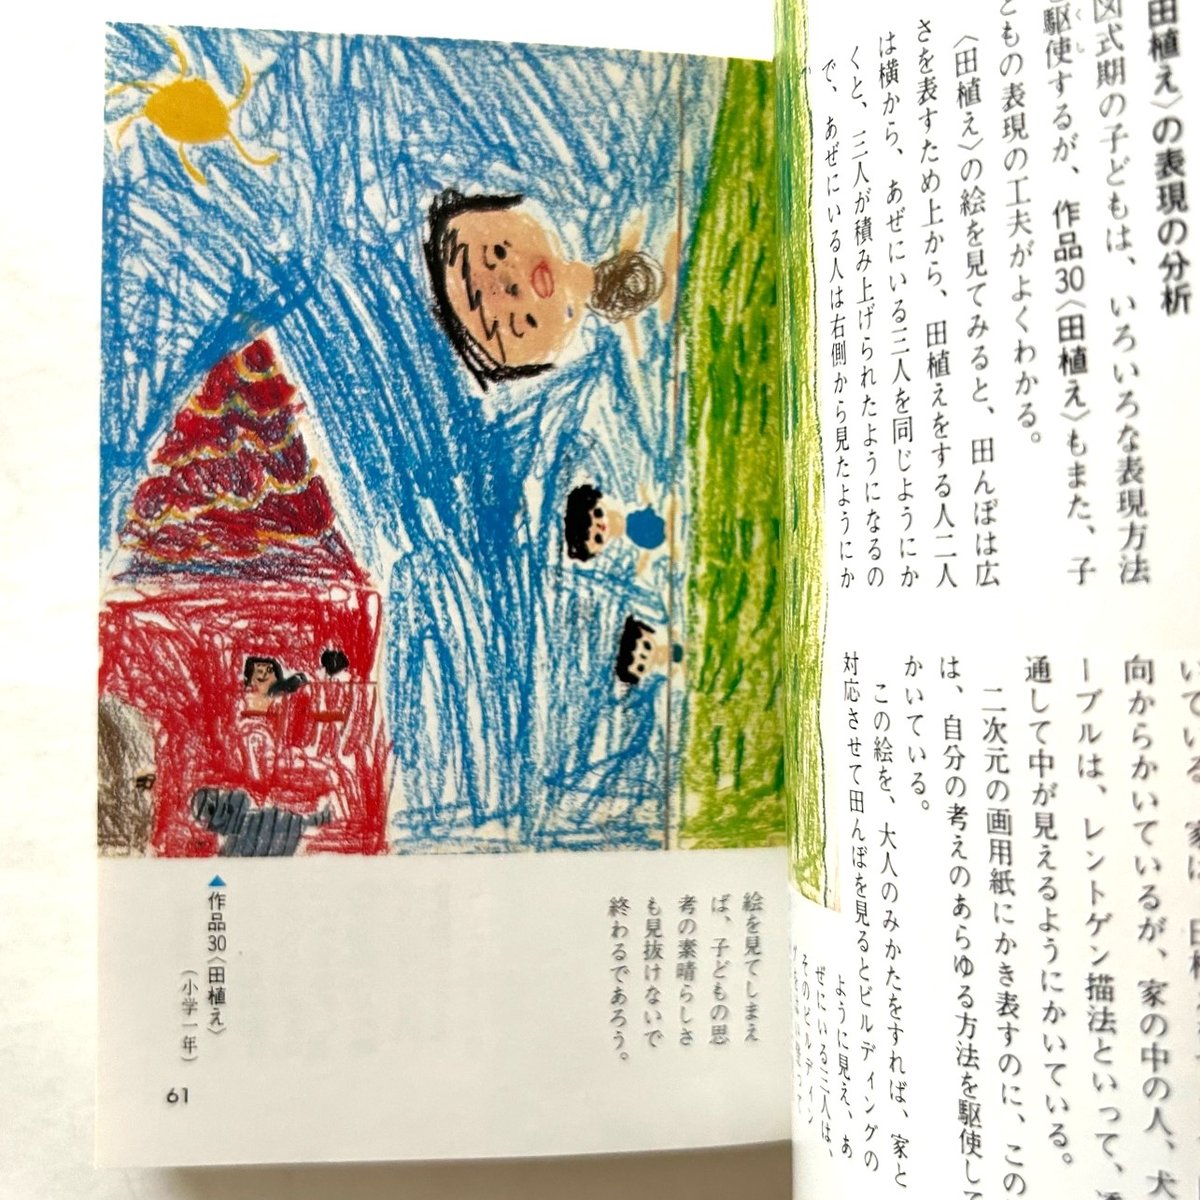 田植え〉の表現の分析
図式期の子どもは、いろいろな表現方法
駆使するが、作品30〈田植え〉もまた、子
どもの表現の工夫がよくわかる。
〈田植え〉の絵を見てみると、田んぼは広
さを表すため上から、田植えをする人二人
は横から、あぜにいる三人を同じようにか
くと、三人が積み上げられたようになるの
で、あぜにいる人は右側から見たようにか
いている。家は、
向からかいているが、家の中の人、犬
ーブルは、レントゲン描法といって、
通して中が見えるようにかいている。
二次元の画用紙にかき表すのに、この
は、自分の考えのあらゆる方法を駆使して
かいている。
この絵を、大人のみかたをすれば、家と
対応させて田んぼを見るとビルディングの
ように見え、あ
ぜにいる三人は、
そのビルディン
絵を見てしまえ
ば、子どもの思
考の素晴らしさ
も見抜けないで
終わるであろう。
▲作品30〈田植え〉
(小学一年)
61